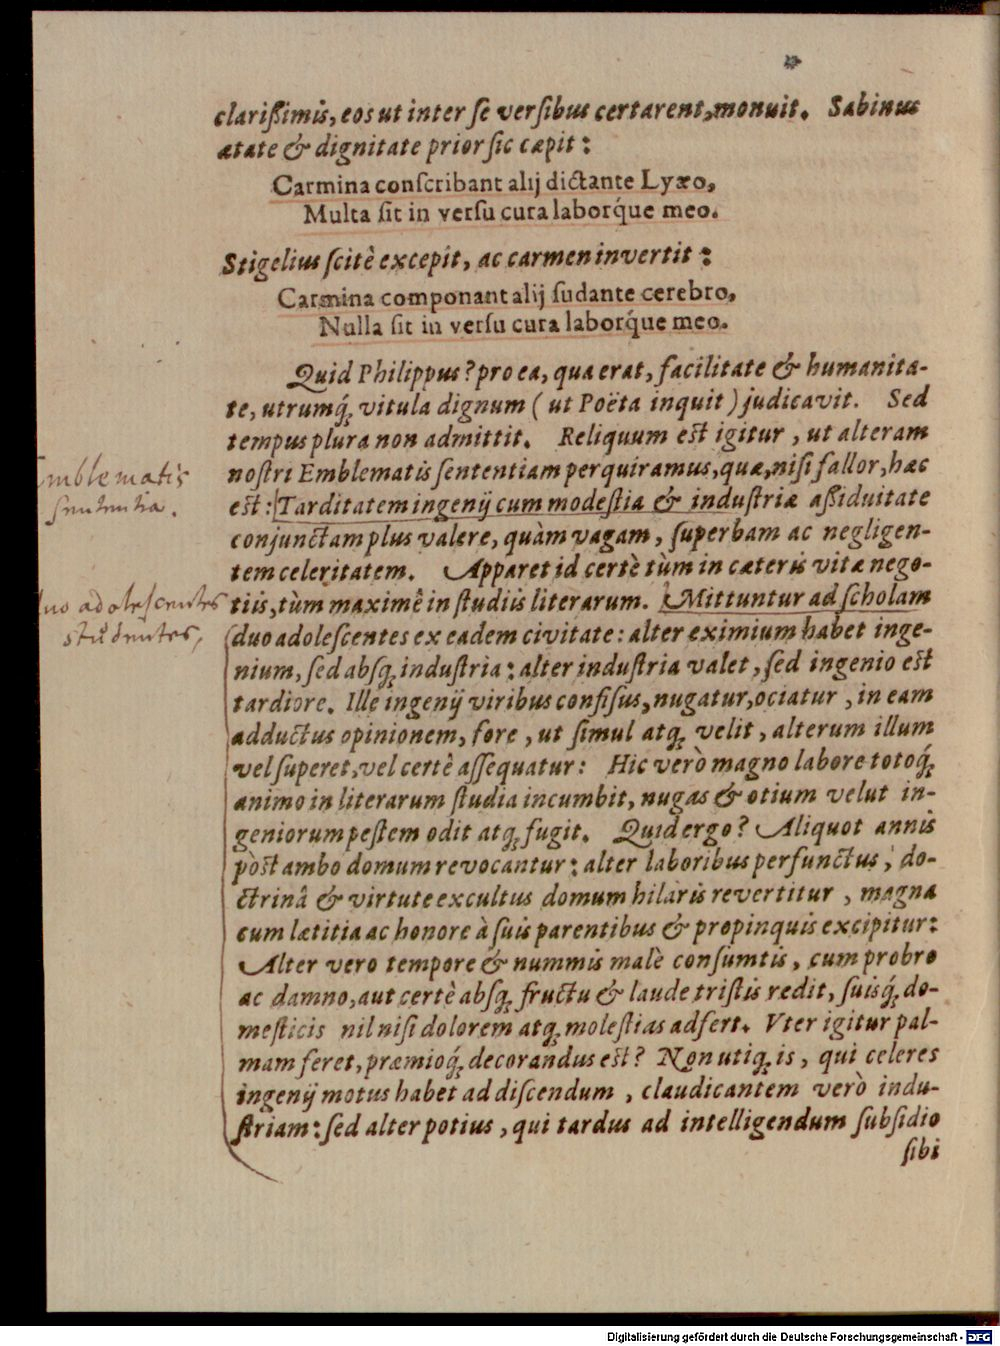 clarißimis, eos ut inter ſe verſibus certarent, monuit. Sabinus
ætate & dignitate prior ſic cæpit:
Carmina conſcribant alij dictante Lyæo,
Multa ſit in verſu cura laborq́ue meo.
Stigelius ſcitè excepit, ac carmen invertit:
Carmina componant alij ſudante cerebro,
Nulla ſit in verſu cura laborq́ue meo.
Quid Philippus? pro ea, qua erat, facilitate & humanita-
te, utrumq́; vitula dignum (ut Poëta inquit) judicavit. Sed
tempus plura non admittit. Reliquum eſt igitur, ut alteram
noſtri Emblematis ſententiam perquiramus, quæ, niſi fallor, hæc
eſt: Tarditatem ingenij cum modeſtia & induſtriæ aßiduitate
conjunctam plus valere, quàm vagam, ſuperbam ac negligen-
tem celeritatem. Apparet id certè tùm in cæteris vitæ nego-
tiis, tùm maximè in ſtudiis literarum. Mittuntur ad ſcholam
duo adoleſcentes ex eadem civitate: alter eximium habet inge-
nium, ſed absq; induſtria: alter induſtria valet, ſed ingenio eſt
tardiore. Ille ingenij viribus confiſus, nugatur, ociatur, in eam
adductus opinionem, fore, ut ſimul atq; velit, alterum illum
vel ſuperet, vel certè aſſequatur: Hic verò magno labore totoq́;
animo in literarum ſtudia incumbit, nugas & otium velut in-
geniorum peſtem odit atq; fugit. Quid ergo? Aliquot annis
poſt ambo domum revocantur: alter laboribus perfunctus, do-
ctrinâ & virtute excultus domum hilaris revertitur, magna
cum lætitia ac honore à ſuis parentibus & propinquis excipitur:
Alter vero tempore & nummis malè conſumtis, cum probro
ac damno, aut certè abſq; fructu & laude triſtis redit, ſuisq́; do-
meſticis nil niſi dolorem atq; moleſtias adfert. Vter igitur pal-
mam feret, præmioq́; decorandus eſt? Non utiq; is, qui celeres
ingenij motus habet ad diſcendum, claudicantem verò indu-
ſtriam: ſed alter potius, qui tardus ad intelligendum ſubſidio
ſibi
Emblematis
sententia.
duo adolescentes
studentes,
Digitalisierung gefördert durch die Deutsche Forschungsgemeinschaft - DFG